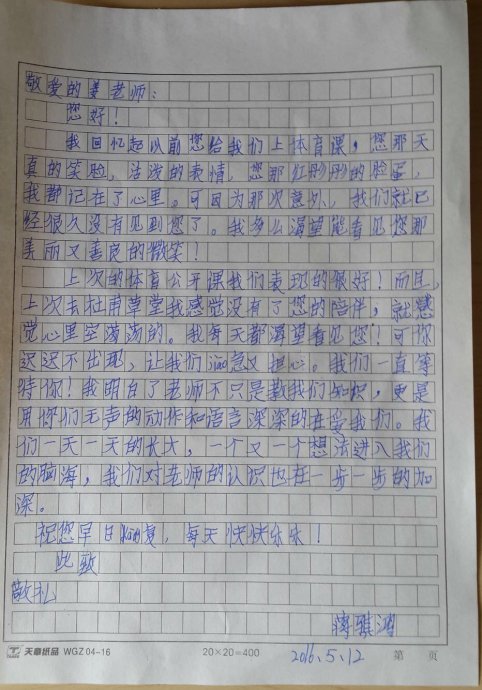 敬爱的姜老师：
您好！
我回忆起以前您给我们上体育课，您那天
真的笑脸，活泼的表情，您那红彤彤的脸蛋，
我都记在了心里。可因为那次意外，我们就已
经很久没有见到您了。我多么渴望能看见您那
美丽又善良的微笑！
上次的体育公开课我们表现的很好！而且，
上次去杜甫草堂我感觉没有了您的陪伴，就感
觉心里空荡荡的。我每天都渴望看见您！可你
迟迟不出现，让我们又担心。我们一直等
待你！我明白了老师不只是教我们知识，更是
用你们无声的动作和语言深深的在爱我们。我
们一天一天的长大，一个又一个想法进入我们
的脑海，我们对老师的认识也在一步一步的加
深。
祝您早日，每天快快乐乐！
此致
敬礼
蒋骐鸿
2016.5.12
天章纸品 WGZ 04-16 20×20=400 第 页
TANGO